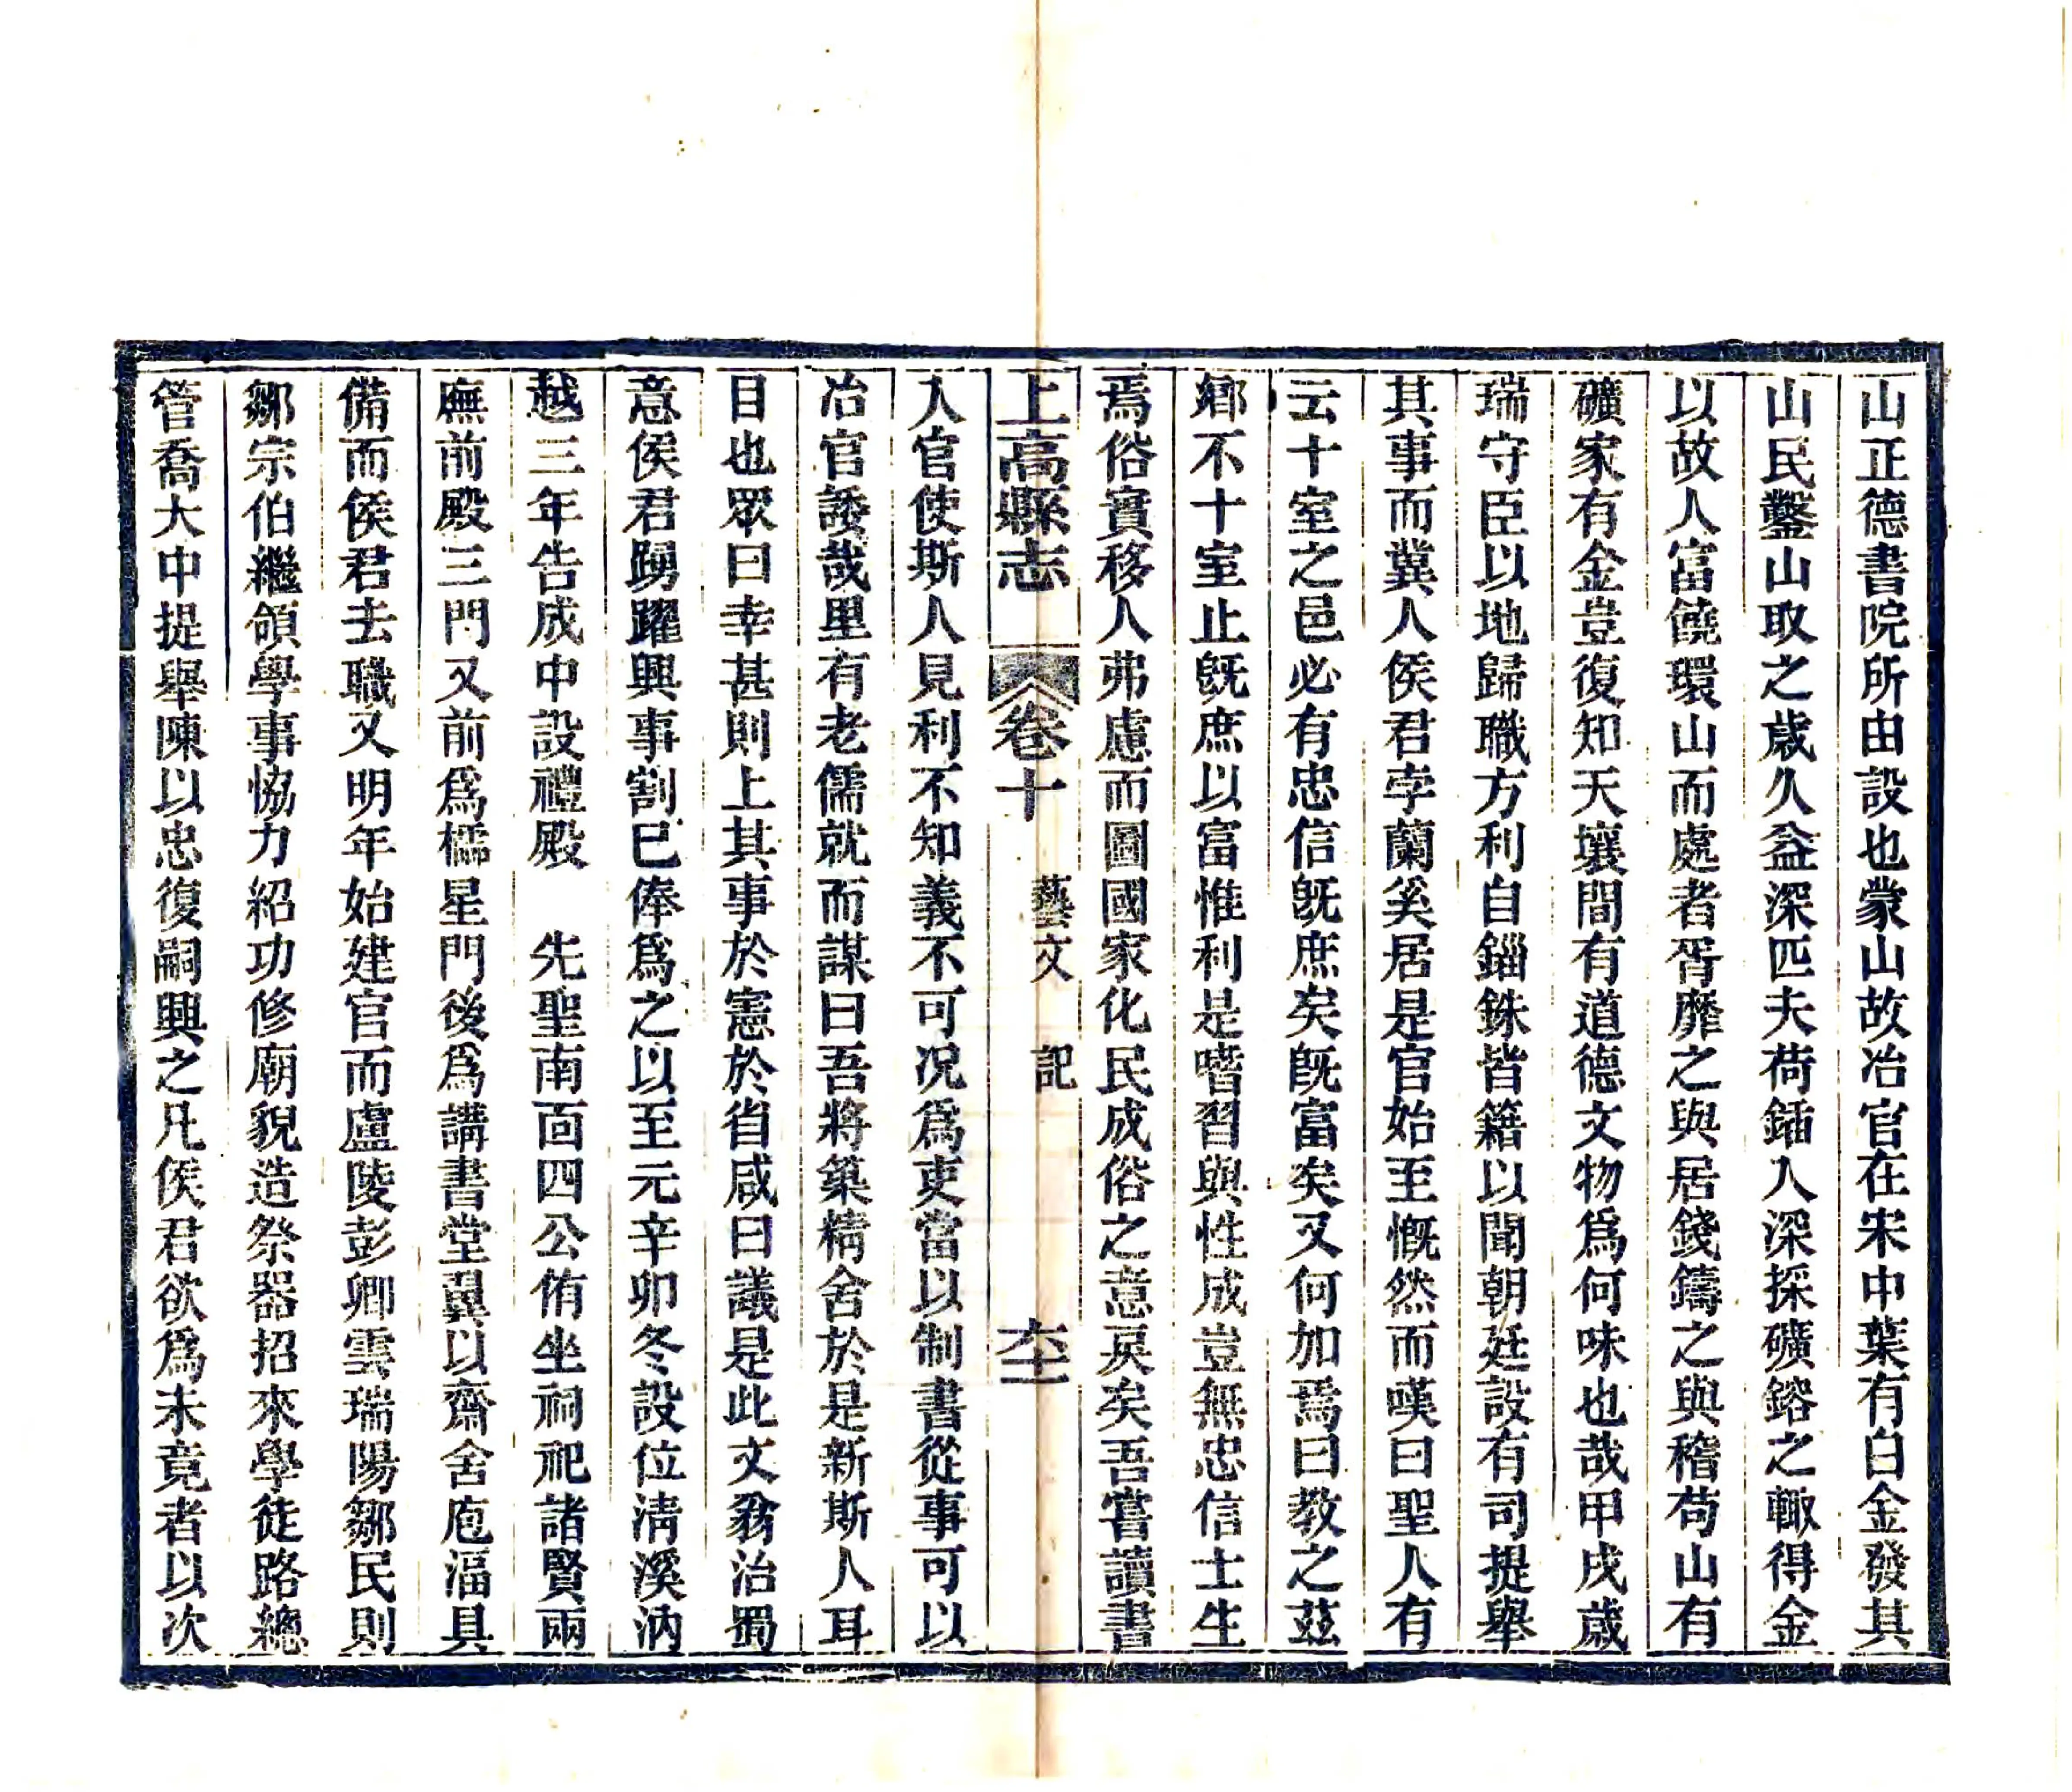 山正德書院所由設也蒙山故冶官在宋中葉有白金發其
山民鑿山取之歲久益深匹夫荷鍤入深採礦鎔之輙得金
以故人富饒環山而處者胥靡之與居錢鑄之與稽茍山有
礦家有金豈復知天壤間有道德文物爲何味也哉甲戌歲
瑞守臣以地歸職方利自錙銖皆籍以聞朝廷設有司提舉
其事而冀人侯君孛蘭奚居是官始至慨然而嘆曰聖人有
云十室之邑必有忠信旣庶矣旣富矣又何加焉曰教之茲
鄉不十室止旣庶以富惟利是嗜習與性成豈無忠信士生
焉俗實移人弗慮而圖國家化民成俗之意戾矣吾嘗讀書
上高縣志 卷十 藝文 記 六十一
入官使斯人見利不知義不可况爲吏當以制書從事可以
冶官諉哉里有老儒就而謀曰吾將築精舍於是新斯人耳
目也眾曰幸甚則上其事於憲於省咸曰議是此文翁治蜀
意侯君踴躍興事割已俸爲之以至元辛卯冬設位淸溪汭
越三年告成中設禮殿 先聖南面四公侑坐祠祀諸賢兩
廡前殿三門又前爲櫺星門後爲講書堂翼以齋舍庖湢具
備而侯君去職又明年始建官而盧陵彭卿雲瑞陽鄒民則
鄒宗伯繼領學事恊力紹功修廟貌造祭器招來學徒路總
管喬大中提舉陳以忠復嗣興之凡侯君欲爲未竟者以次